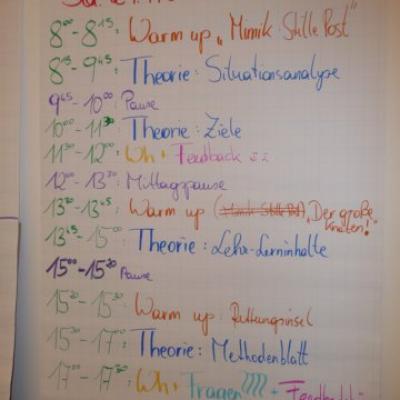 8⁰⁰ - 8¹⁵: Warm up „Mimik Stille Post"
8¹⁵ - 9⁴⁵: Theorie: Situationsanalyse
9⁴⁵ - 10⁰⁰: Pause
10⁰⁰ - 11³⁰: Theorie: Ziele
11³⁰ - 12⁰⁰: Wh + Feedback
12⁰⁰ - 13³⁰: Mittagspause
13³⁰ - 13⁴⁵: Warm up (Mimik Stille Post) „Der große Knoten!"
13⁴⁵ - 15⁰⁰: Theorie: Lehr-Lerninhalte
15⁰⁰ - 15³⁰ Pause
15²⁰ - 15³⁰: Warm up: Rettungsinsel
15³⁰ - 17⁰⁰: Theorie: Methodenblatt
17⁰⁰ - 17³⁰: Wh + Fragen???? + Feedback